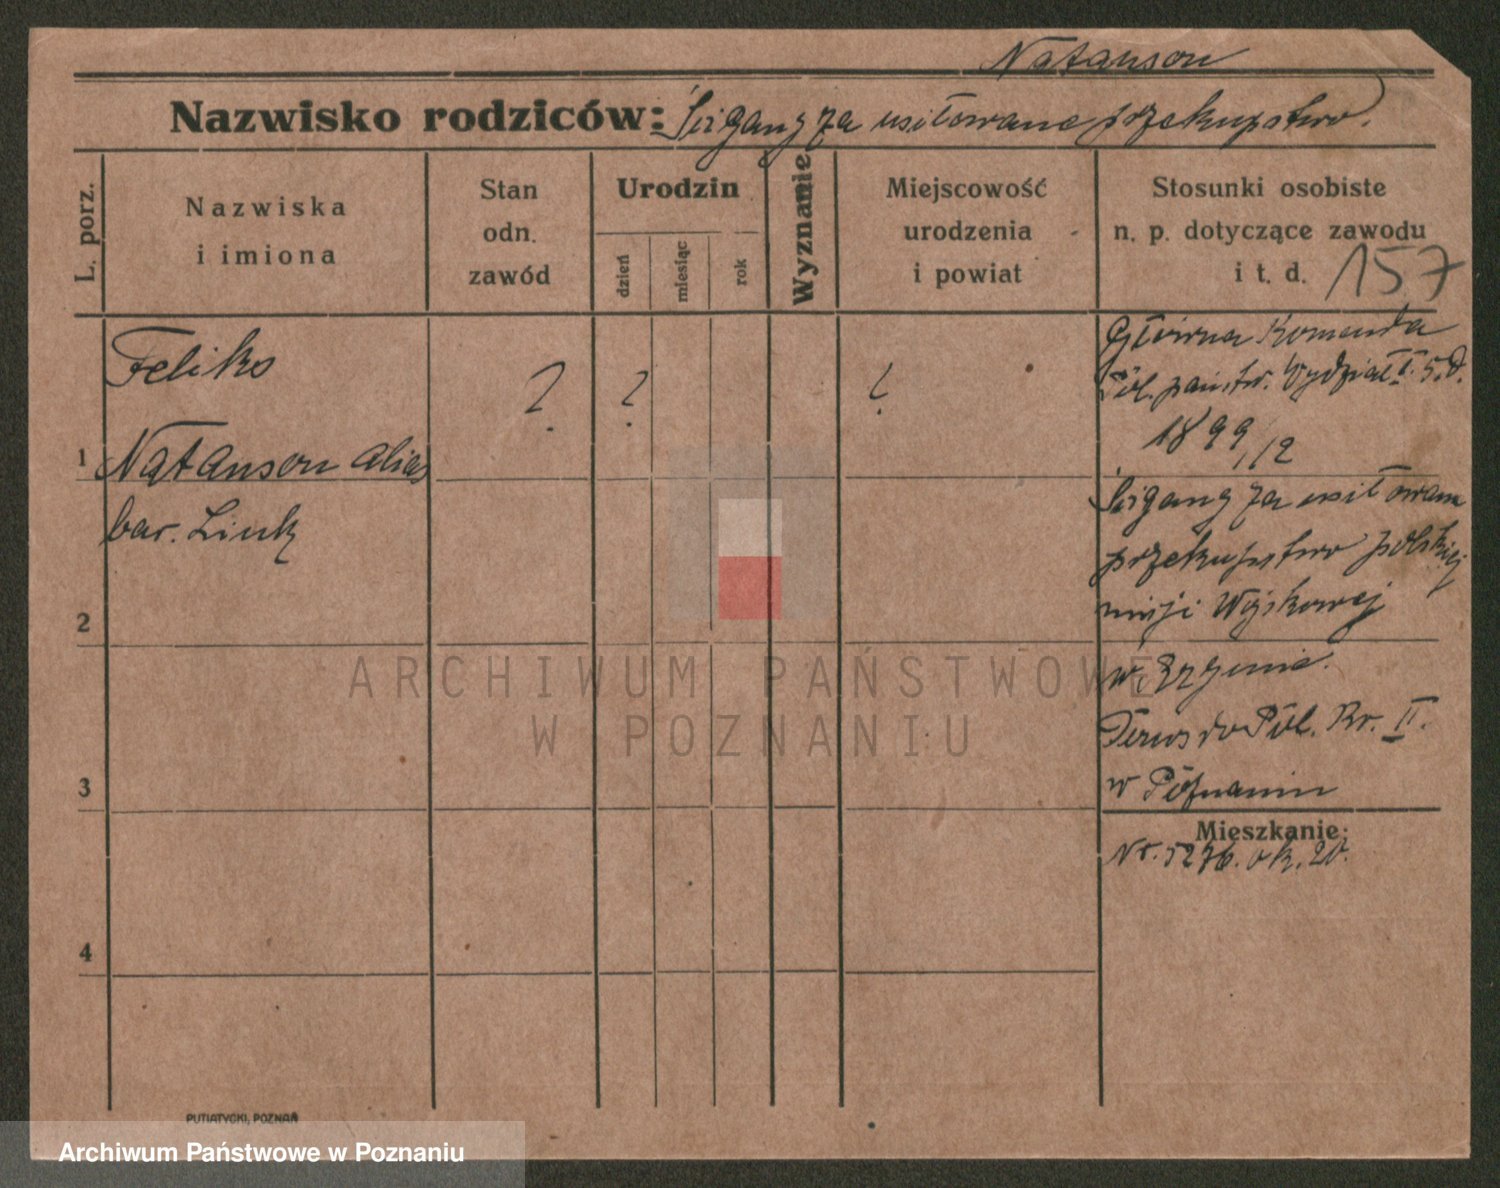 Natanson
Nazwisko rodziców: Ścigany za usiłowane przekupstwo.
L. porz.
Nazwiska
i imiona
Stan
odn.
zawód
Urodzin
dzień
miesiąc
rok
Wyznanie
Miejscowość
urodzenia
i powiat
Stosunki osobiste
n. p. dotyczące zawodu
i t. d.
157
Feliks
? ? ?
1 Natanson alias
bar. Link
2
3
4
Główna Komenda
Pol. państw. Wydział II. 5. d.
1899/12
Ścigany za usiłowane
przekupstwo polskiej
misji Wojskowej
w
do Pol. Kr. II.
w Poznaniu
Mieszkanie:
Nr. 5276. 20.
ARCHIWUM PAŃSTWOWE
W POZNANIU
PUTIATYCKI, POZNAŃ
Archiwum Państwowe w Poznaniu